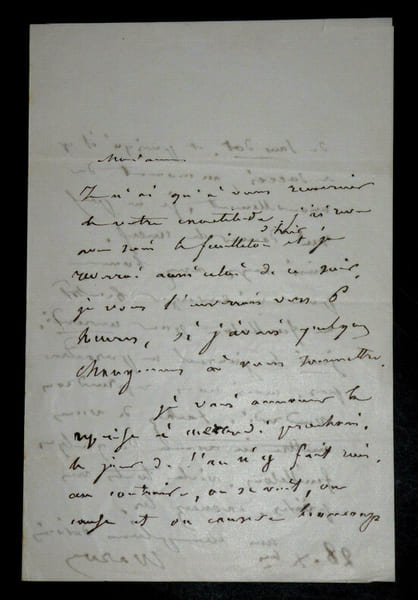 Madame
Je n'ai qu'à vous remercier
de votre exactitude, j'ai reçu
d'hier
hier soir le feuilleton et je
recevrai aussi celui de ce soir,
je vous l'enverrai vers 6
heures, si j'avais quelques
changemens à vous soumettre.
je vais annoncer la
reprise à mercredi prochain,
le jour de l'an n'y fait rien,
au contraire, on se voit, on
cause et on cause beaucoup
28. Xbre